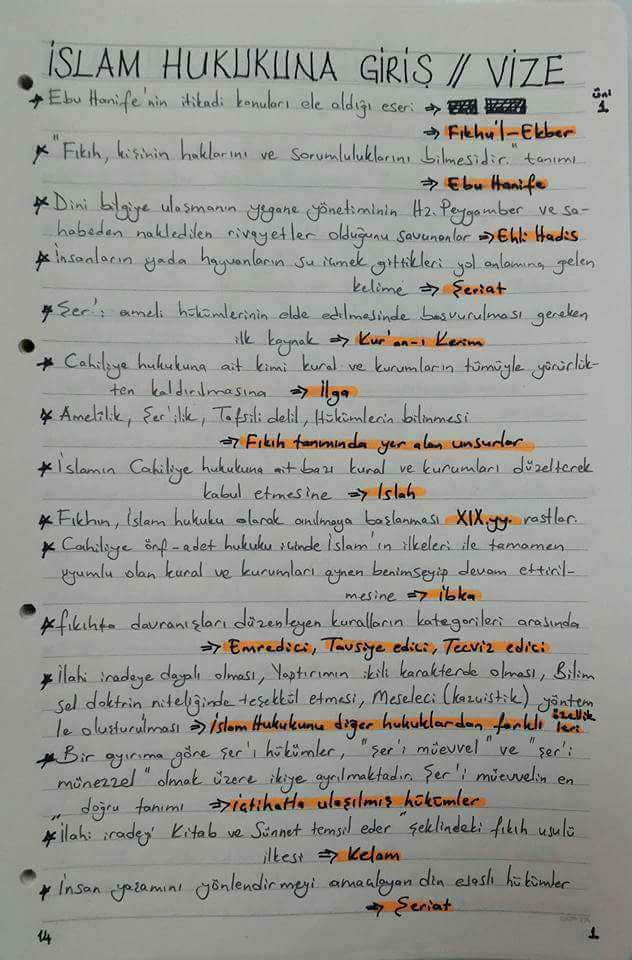 İSLAM HUKUKUNA GİRİŞ // VİZE
üni
1
* Ebu Hanife'nin itikadi konuları ele aldığı eseri ⇒
⇒ Fıkhu'l-Ekber
* "Fıkıh, kişinin haklarını ve sorumluluklarını bilmesidir." tanımı
⇒ Ebu Hanife
* Dini bilgiye ulaşmanın yegane yönetiminin Hz. Peygamber ve sa-
habeden nakledilen rivayetler olduğunu savunanlar ⇒ Ehli Hadis
* İnsanların yada hayvanların su içmek gittikleri yol anlamına gelen
kelime ⇒ Şeriat
* Şer'i ameli hükümlerinin elde edilmesinde başvurulması gereken
ilk kaynak ⇒ Kur'an-ı Kerim
* Cahiliye hukukuna ait kimi kural ve kurumların tümüyle yürürlük-
ten kaldırılmasına ⇒ İlga
* Amelilik, Şer'ilik, Tafsili delil, Hükümlerin bilinmesi
⇒ Fıkıh tanımında yer alan unsurlar
* İslamın Cahiliye hukukuna ait bazı kural ve kurumları düzelterek
kabul etmesine ⇒ Islah
* Fıkhın, İslam hukuku olarak anılmaya başlanması XIX.yy. rastlar.
* Cahiliye örf-adet hukuku içinde İslam'ın ilkeleri ile tamamen
uyumlu olan kural ve kurumları aynen benimseyip devam ettiril-
mesine ⇒ ibka
* fıkıhta davranışları düzenleyen kuralların kategorileri arasında
⇒ Emredici, Tavsiye edici, Tecviz edici
* İlahi iradeye dayalı olması, Yaptırımın ikili karakterde olması, Bilim
sel doktrin niteliğinde teşekkül etmesi, Meseleci (kazuistik) yöntem
le oluşturulması ⇒ İslam Hukukunu diğer hukuklardan farklı özellik
leri
* Bir ayırıma göre şer'i hükümler, "şer'i müevvel" ve "şer'i
münezzel" olmak üzere ikiye ayrılmaktadır. Şer'i müevvelin en
doğru tanımı ⇒ içtihatla ulaşılmış hükümler
* "İlahi iradeyi Kitab ve Sünnet temsil eder" şeklindeki fıkıh usulü
ilkesi ⇒ Kelam
* İnsan yaşamını yönlendirmeyi amaçlayan din esaslı hükümler
⇒ Şeriat
14
1